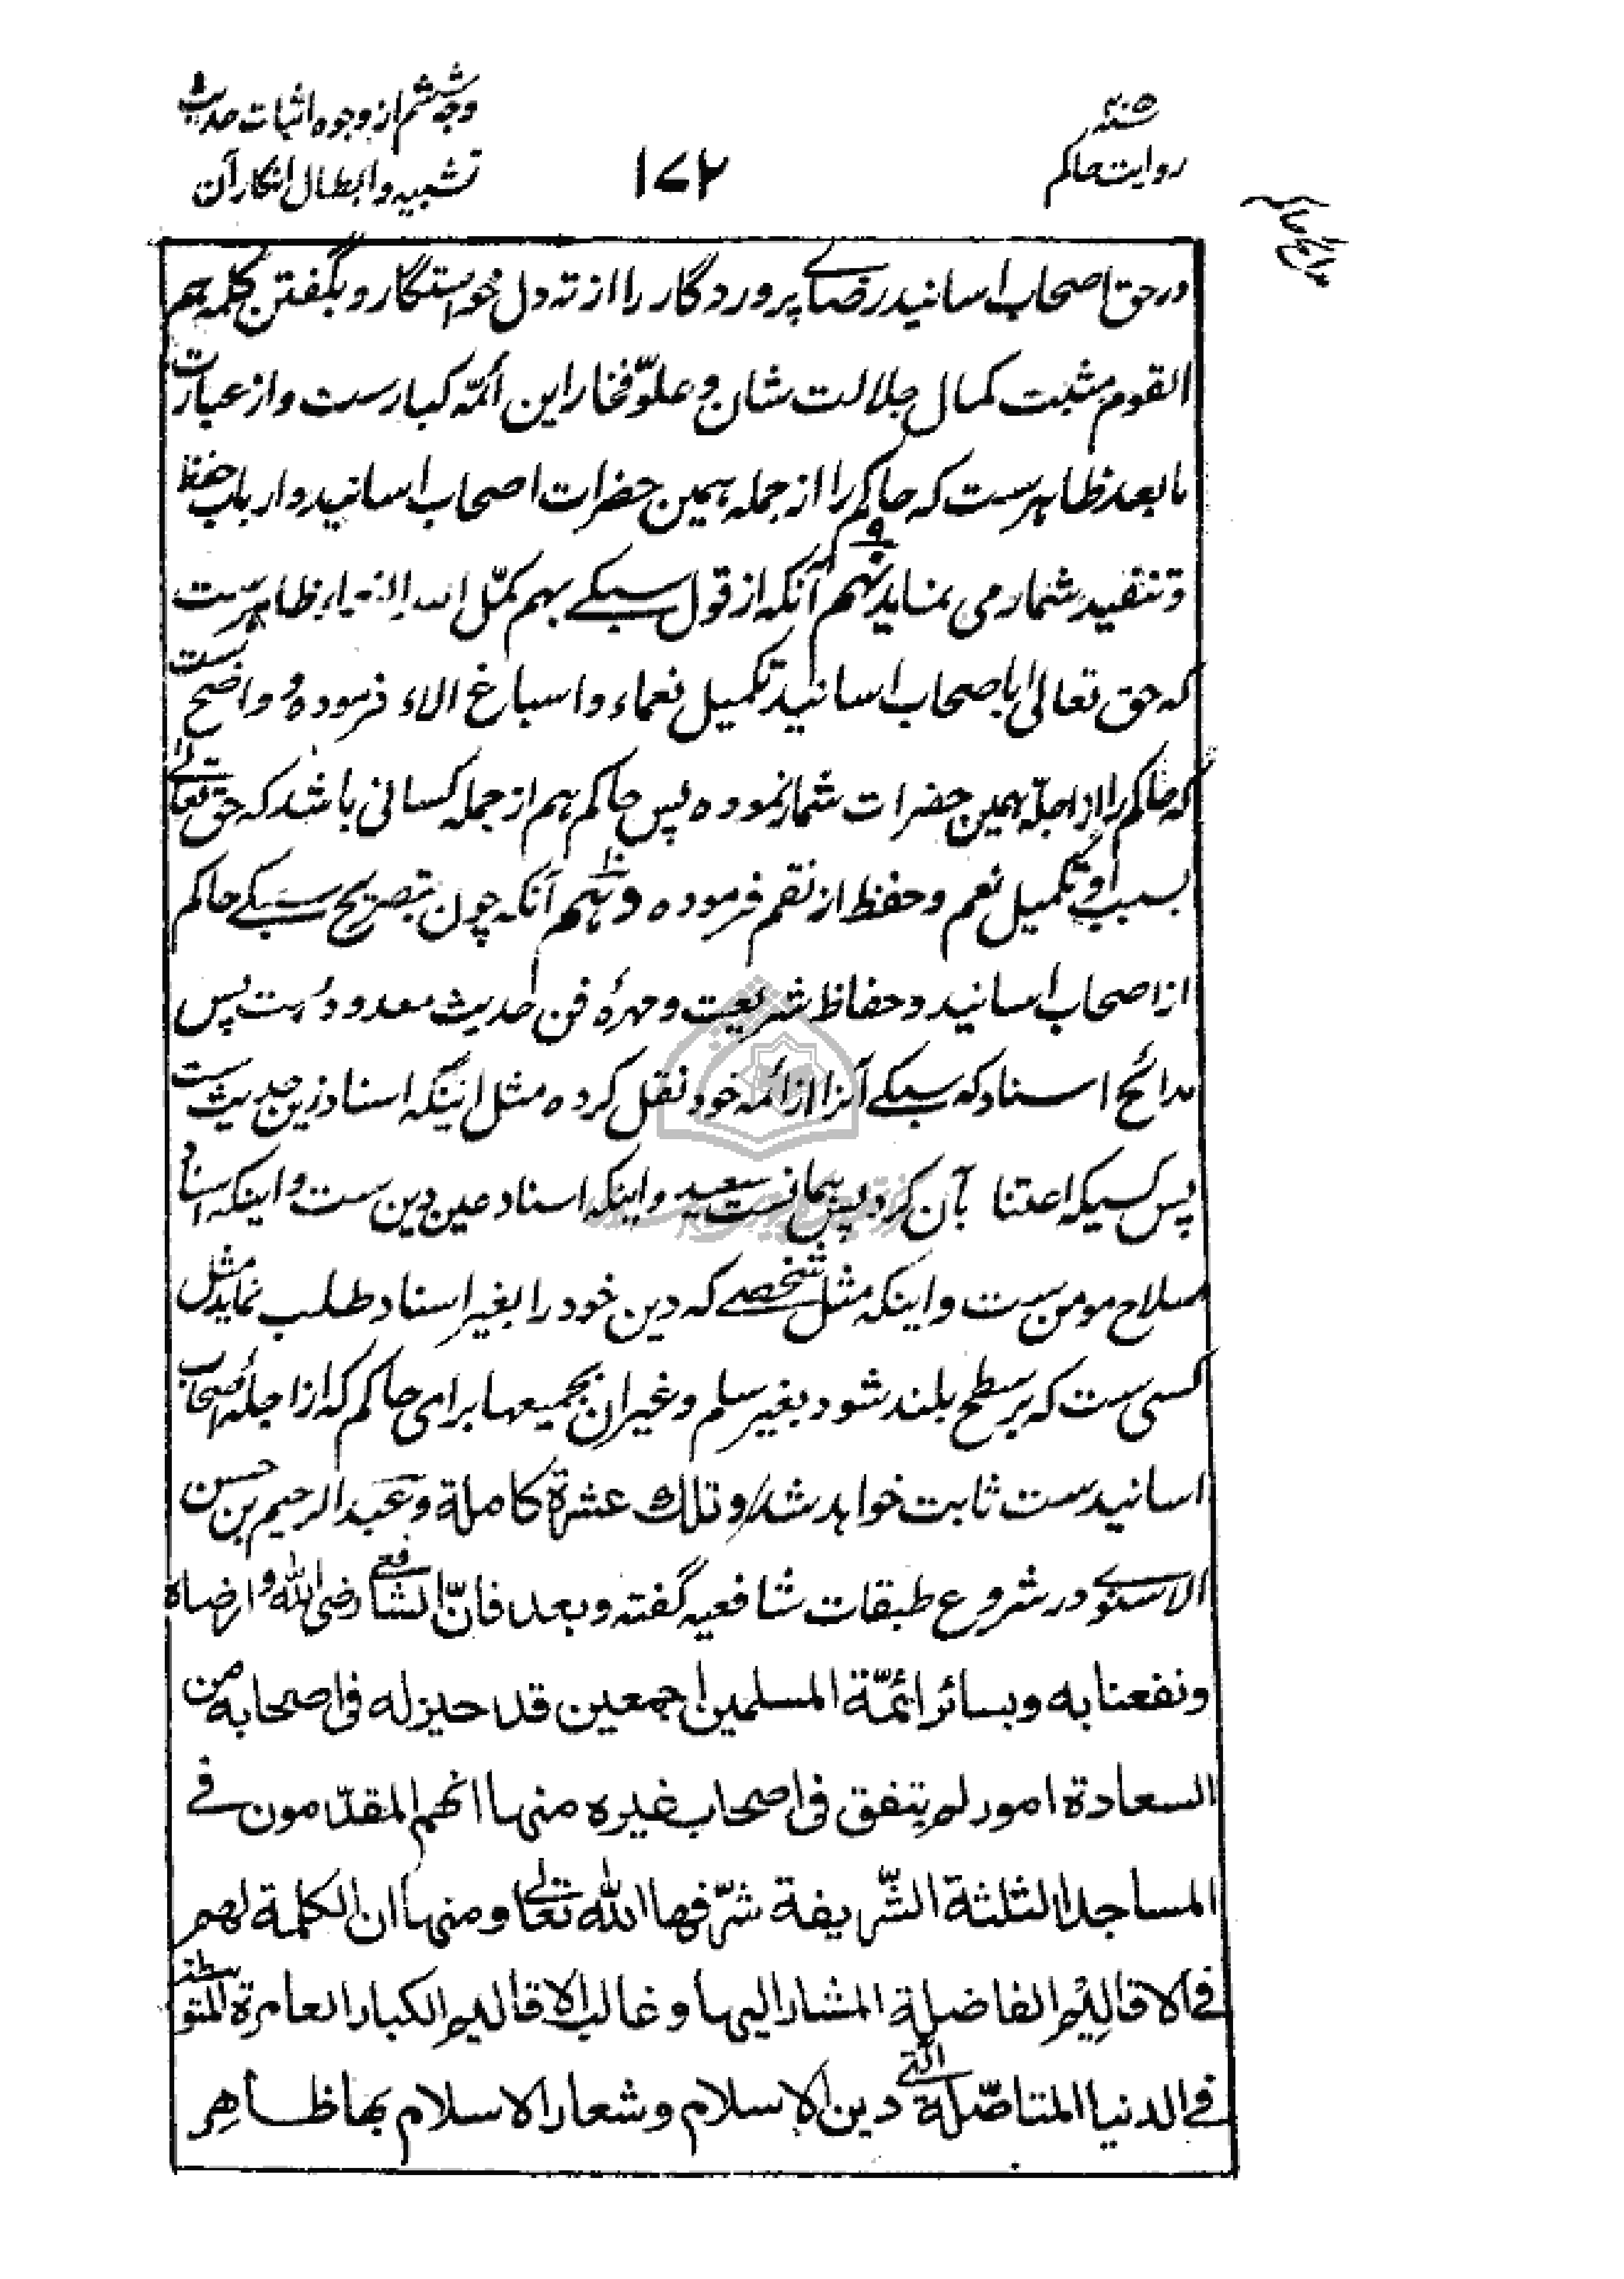 سنه ۴۰۵
روایت حاکم
۱۷۲
وجه ششم از وجوه اثبات حدیث
تشبیه و ابطال انکار آن
مدائح حاکم
در حق اصحاب اسانید رضای پروردگار را از ته دل خواستگار و بگفتن کلمه هم
القوم مثبت کمال جلالت شان و علوّ فخار این ائمّه کبارست و از عبارت
ما بعد ظاهرست که حاکم را از جمله همین حضرات اصحاب اسانید و ارباب حفظ
و تنقید شمار می نماید نهم آنکه از قول سبکے بهم کمّل الله النعماء ظاهرست
که حق تعالی باصحاب اسانید تکمیل نعماء و اسباغ الاء فرموده و واضح ست
که حاکم را از اجلّه همین حضرات شمار نموده پس حاکم هم از جمله کسانی باشد که حق تعالے
بسبب او تکمیل نعم و حفظ از نقم فرموده دهم آنکه چون بتصریح سبکے حاکم
از اصحاب اسانید و حفاظ شریعت و مهرهٔ فن حدیث معدود ست پس
مدائح اسناد که سبکے آنرا از ائمه خود نقل کرده مثل اینکه اسناد زین حدیث ست
پس کسیکه اعتنا بآن کرد پس همانست سعید و اینکه اسناد عین دین ست و اینکه اسناد
سلاح مومن ست و اینکه مثل شخصے که دین خود را بغیر اسناد طلب نماید مثل
کسی ست که بر سطح بلند شود بغیر سلم و غیر ان بجمیعها برای حاکم که از اجلهٔ اصحاب
اسانیدست ثابت خواهد شد و تلك عشرة کاملة و عبد الرحیم بن حسن
الاسنوے در شروع طبقات شافعیه گفته و بعد فانّ الشافعے رضی الله و ارضاه
و نفعنا به و بسائر ائمّة المسلمین اجمعین قد حیز له فی اصحابه من
السعادة امور لم یتفق فی اصحاب غیره منها انهم المقدّمون فے
المساجد الثلثة الشّریفة شرّفها الله تعالے و منها ان الکلمة لهم
فے الاقالیم الفاضلة المشار الیها و غالب الاقالیم الکبار العامرة المتوسطة
فے الدنیا المتاصّلة الّتے دین الاسلام و شعار الاسلام بها ظاهر